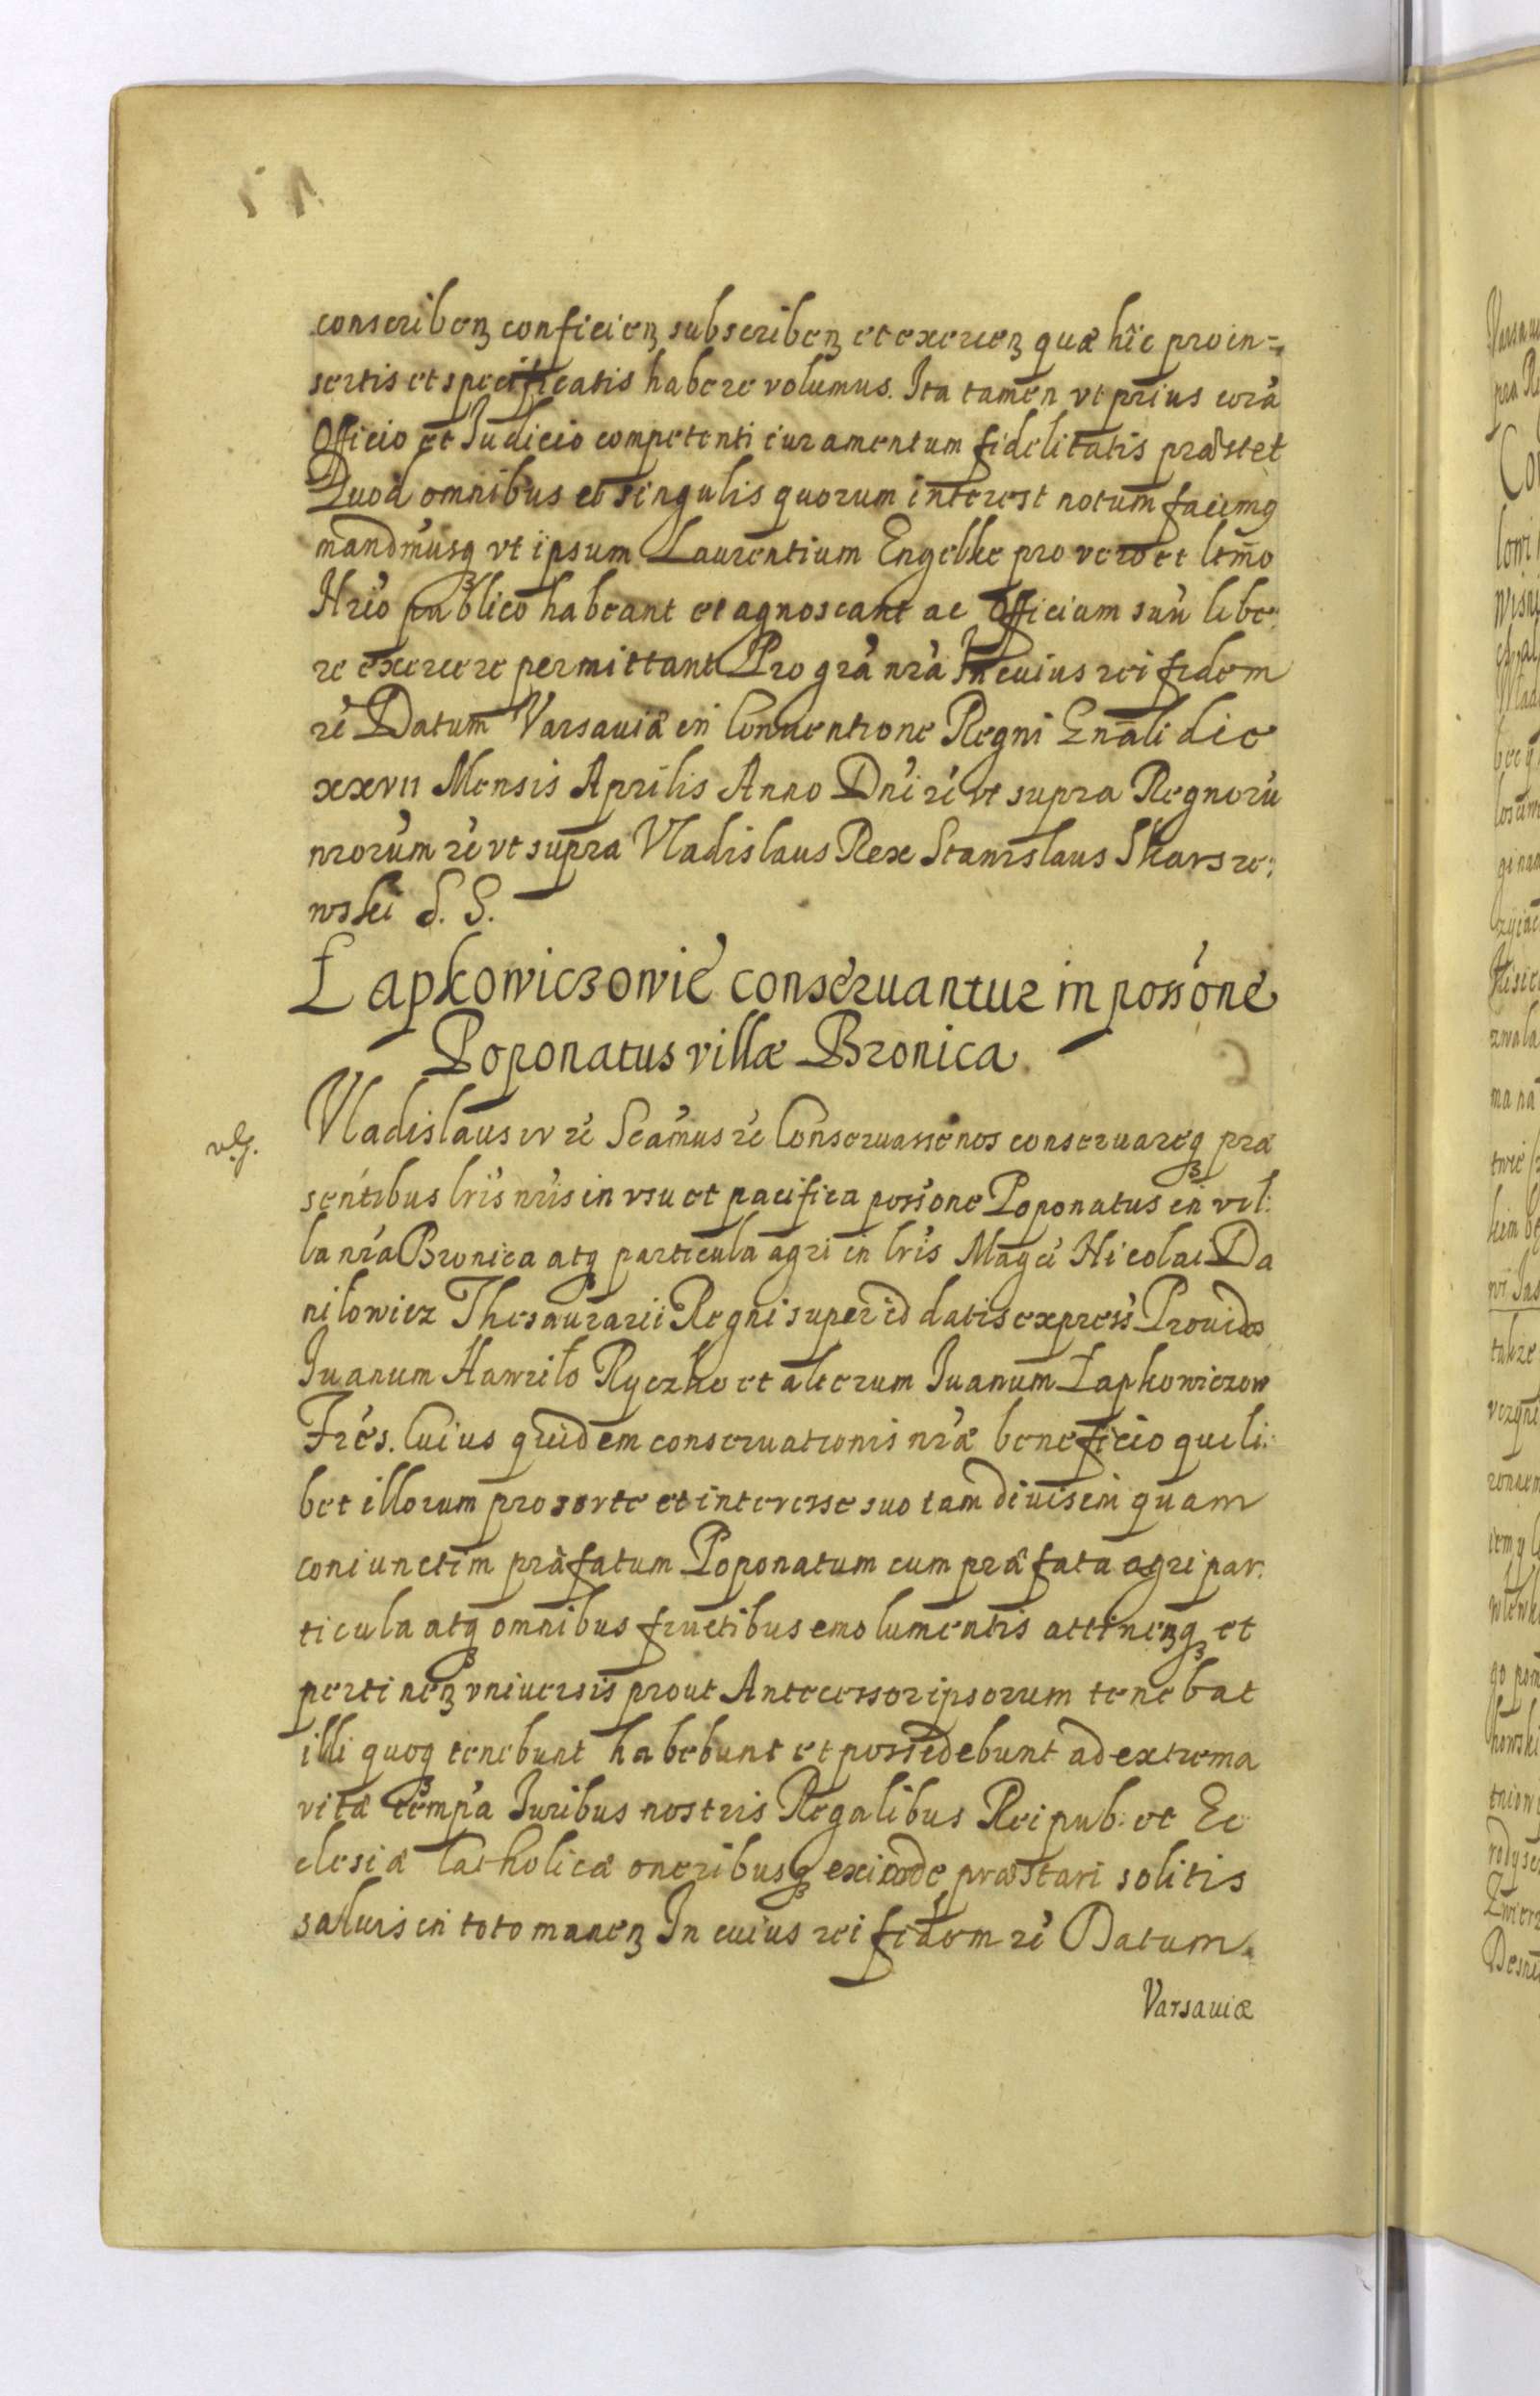 conscribenꝫ conficienꝫ subscribenꝫ et exercenꝫ quæ hîc pro in=
sertis et specificatis habere volumus. Ita tamen vt prius corã
Officio et Iudicio competenti iuramentum fidelitatis præstet
Quod omnibus et singulis quorum interest notum facimꝰ
mandm̃usqꝫ vt ipsum Laurentium Engelke pro vero et ltm̃o
Nr̃io publico habeant et agnoscant ac Officium suũ libe:
re exercere permittant Pro gr̃a nr̃a In cuius rei fidem
rẽ Datum Varsauiæ in Conuentione Regni Gñali die
xxvii Mensis Aprilis Anno Dñi rẽ vt supra Regnorũ
nr̃orum rẽ vt supra Vladislaus Rex Stanislaus Skarsze:
wski S. S.
Łapkowiczowie conseruantur in poss̃one
Poponatus villæ Bronica
vlg.
Vladislaus iv rẽ Scam̃us rẽ Conseruasse nos conseruareqꝫ præ
sentibus lr̃is nr̃is in vsu et pacifica poss̃one Poponatus in vil:
la nr̃a Bronica atqꝫ particula agri in lr̃is Magci Nicolai Da
niłowicz Thesaurarii Regni super id datis express̃ Prouidos
Iuanum Hawriło Ryczko et alterum Iuanum Łapkowiczow
Frẽs. Cuius quidem conseruationis nr̃æ beneficio quili:
bet illorum pro sorte et interesse suo tam diuisim quam
coniunctim præfatum Poponatum cum præfata agri par:
ticula atqꝫ omnibus fructibus emolumentis attinenꝫqꝫ et
pertinenꝫ vniuersis prout Antecessor ipsorum tenebat
illi quoqꝫ tenebunt habebunt et possidebunt ad extrema
vitæ temp̃a Iuribus nostris Regalibus Reipub: et Ec
clesiæ Catholicæ oneribusqꝫ exinde præstari solitis
saluis in toto manenꝫ In cuius rei fidem rẽ Datum
Varsauiæ